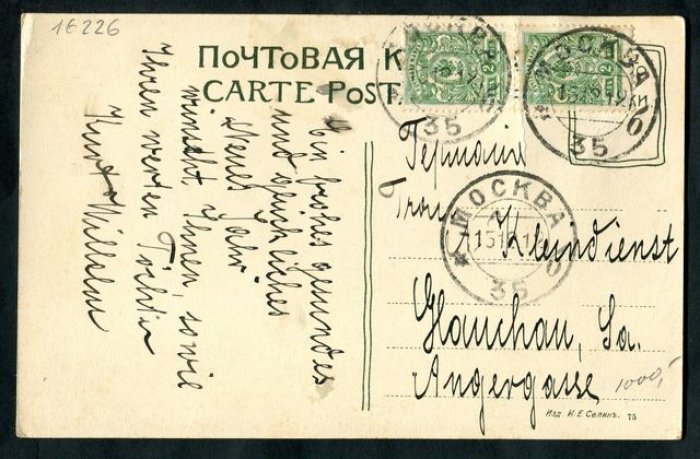 16226
ПОЧТОВАЯ К
CARTE POST
МОСКВА
35
МОСКВА
35
Ein frohes gesundes
und glückliches
Neues Jahr
wünscht Ihnen, sowie
Ihren werten Töchter
Kurt Wilhelm
Германія
Frau
Kleindienst
Glauchau, Sa.
Angergasse
МОСКВА
35
1000,-
Изд. И.Е.Селинъ. 75